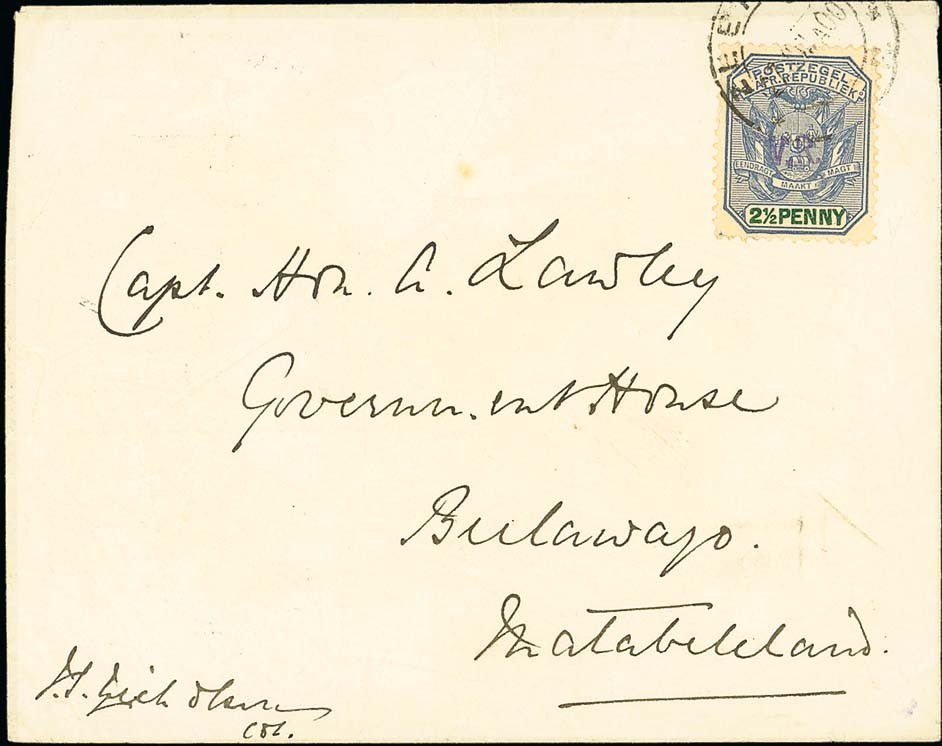 POSTZEGEL
AFR. REPUBLIEK
EENDRAGT MAAKT MAGT
2½ PENNY
Capt. Hon. A. Lawley
Government House
Bulawayo.
Matabeleland.
Col.